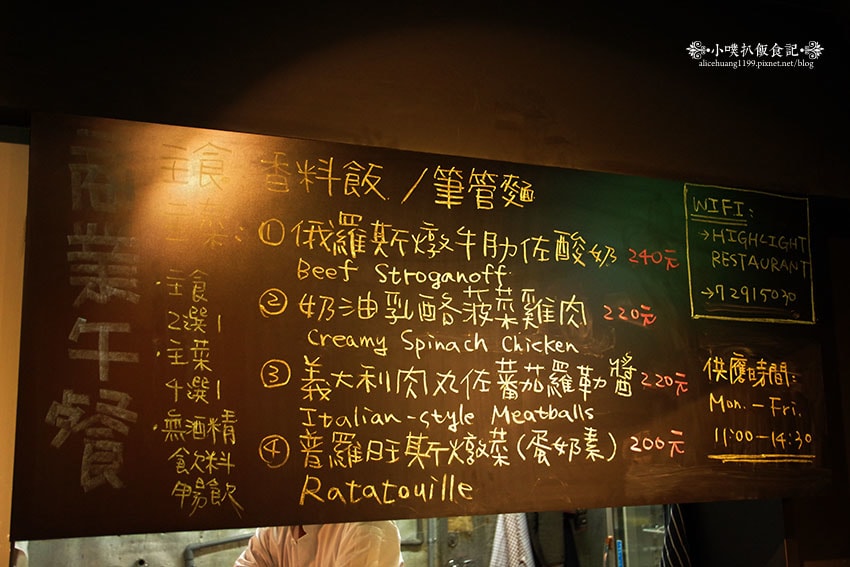 小噗扒飯食記
alicehuang1199.pixnet.net/blog
商業午餐
主食 香料飯 / 筆管麵
主菜:
① 俄羅斯燉牛肋佐酸奶 240元
Beef Stroganoff
② 奶油乳酪菠菜雞肉 220元
Creamy Spinach Chicken
③ 義大利肉丸佐蕃茄羅勒醬 220元
Italian-style Meatballs
④ 普羅旺斯燉菜(蛋奶素) 200元
Ratatouille
·主食
2選1
·主菜
4選1
·無酒精
飲料
暢飲
WIFI:
→HIGHLIGHT
RESTAURANT
→72915030
供應時間:
Mon. - Fri.
11:00-14:30